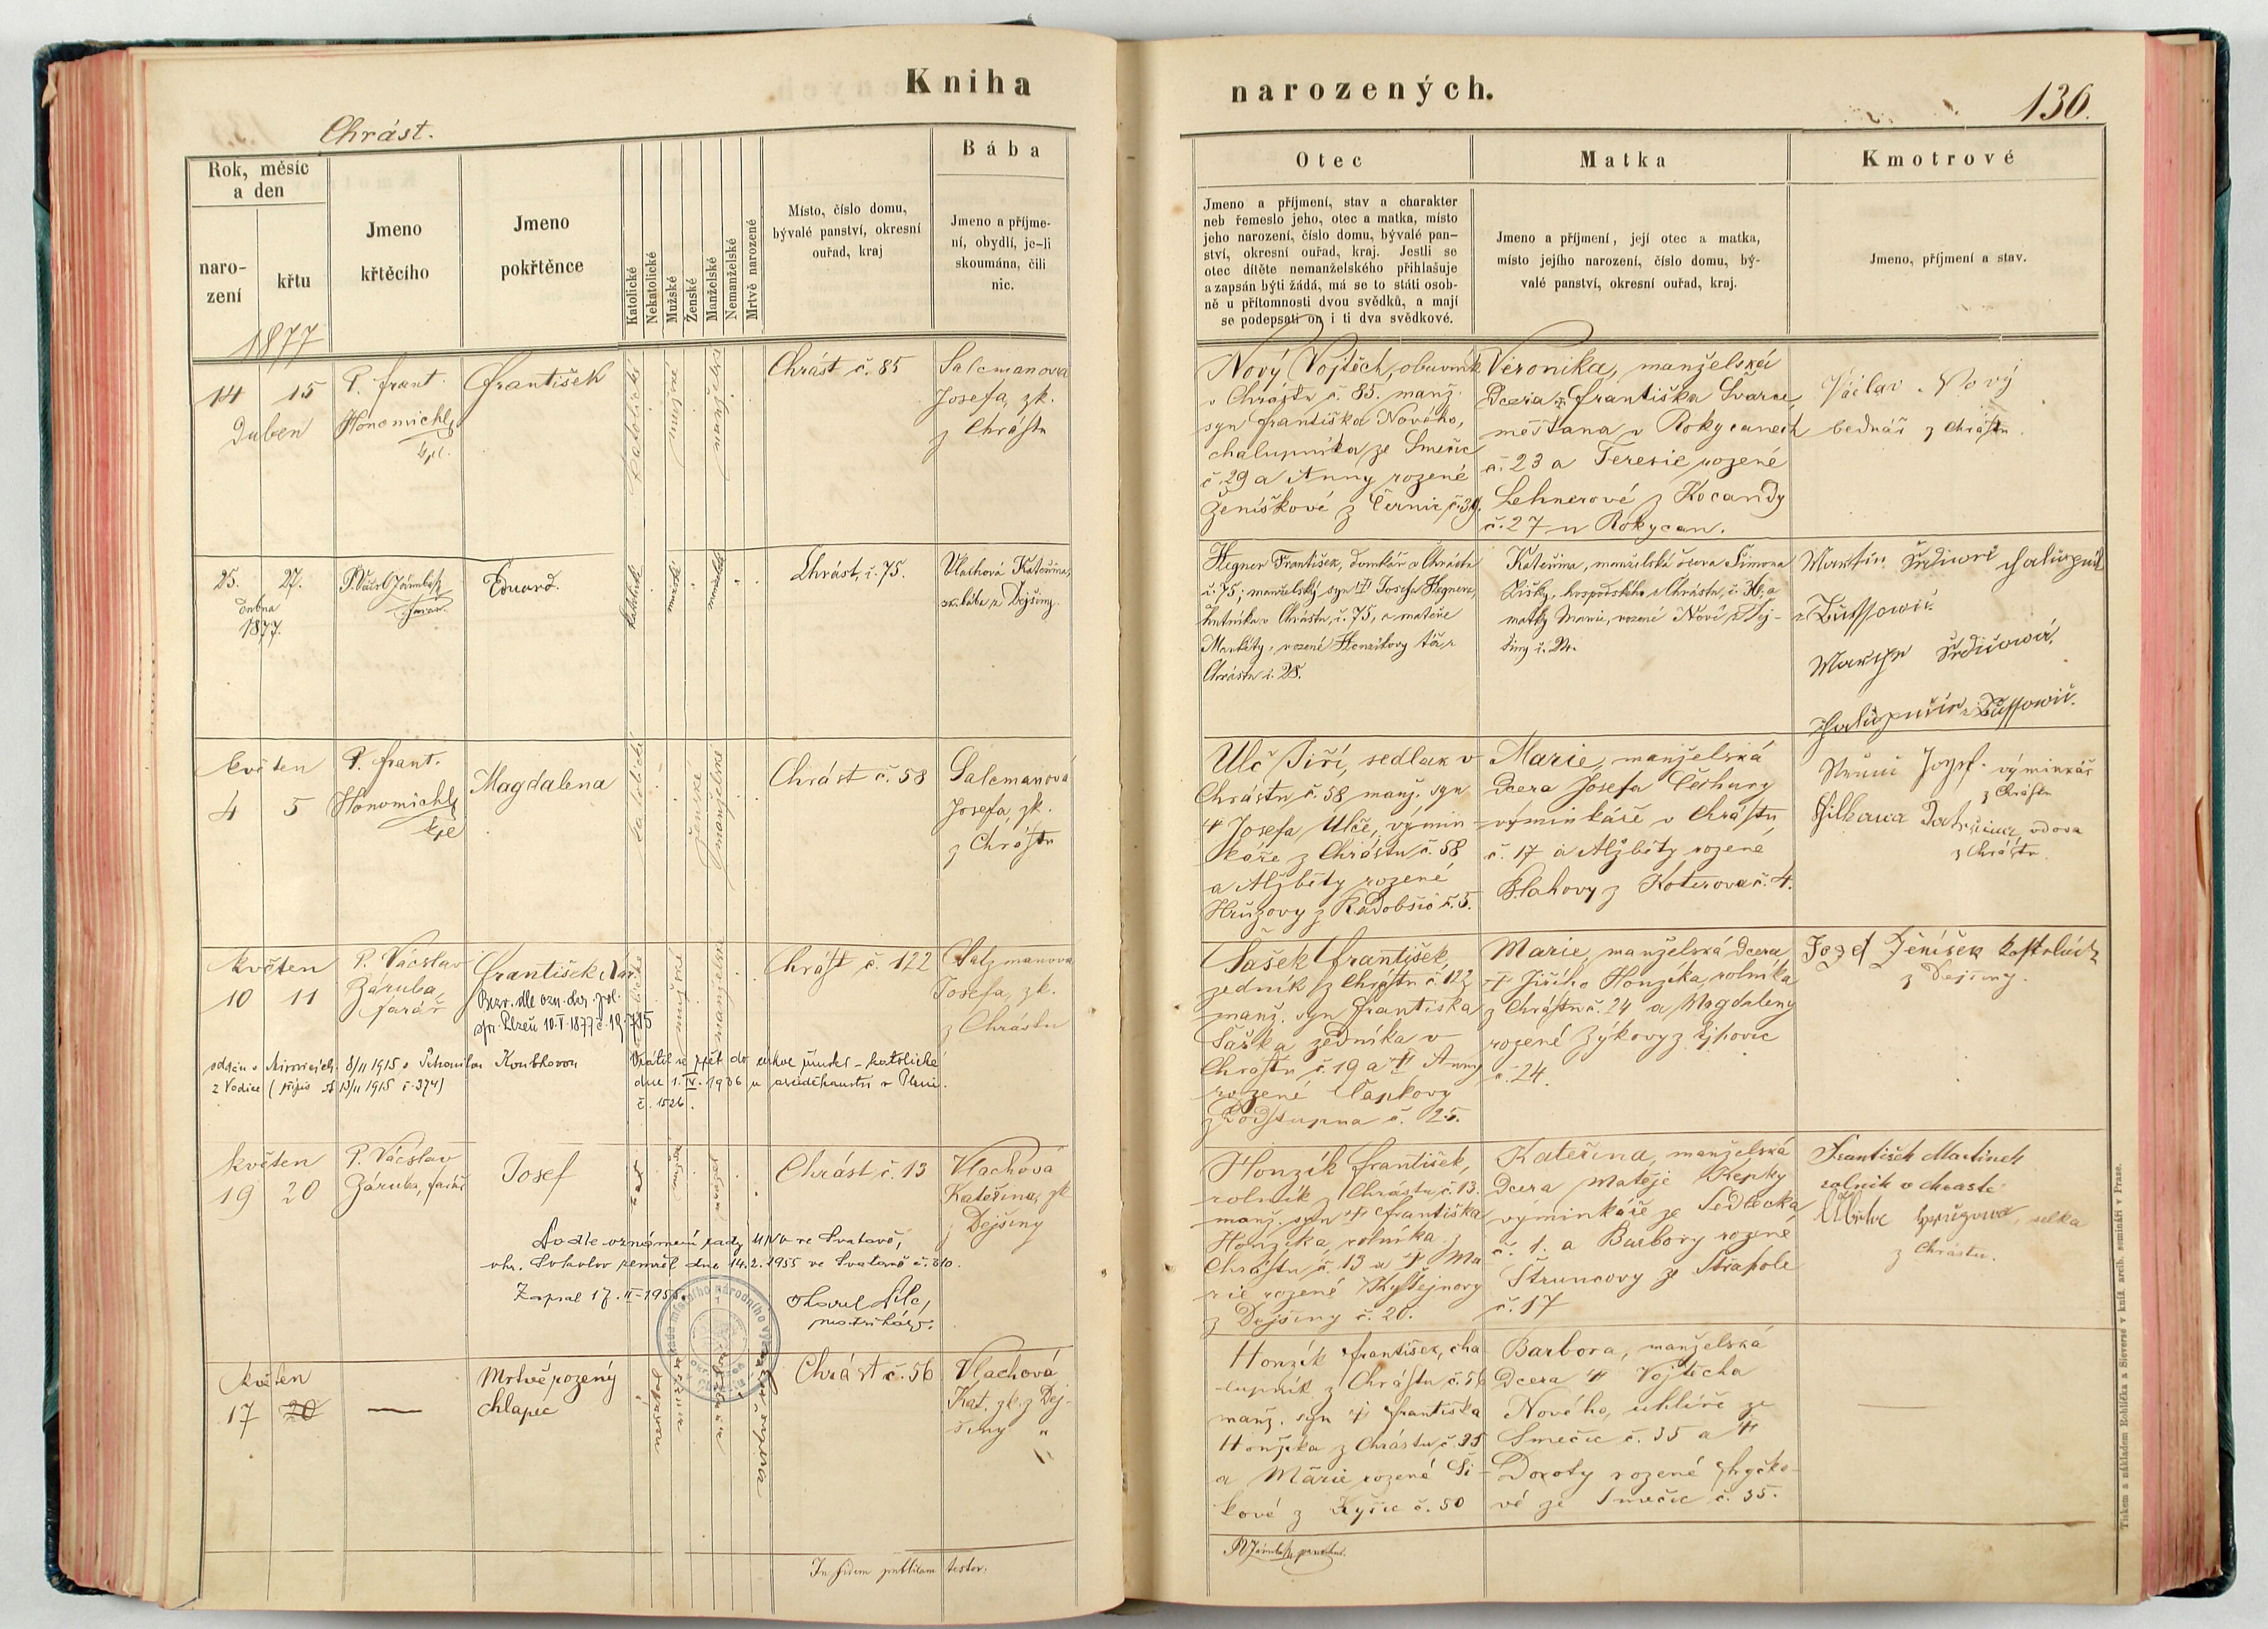 Kniha
Chrást.
Rok, měsíc
a den
naro-
zení
křtu
1877
Jmeno
křtěcího
Jmeno
pokřtěnce
Katolické
Nekatolické
Mužské
Ženské
Manželské
Nemanželské
Mrtvě narozené
Místo, číslo domu,
bývalé panství, okresní
ouřad, kraj
Bába
Jmeno a příjme-
ní, obydlí, je-li
skoumána, čili
nic.
14 15
Duben
P. Frant.
Honomichl
kpl.
František
katolické
mužské
manželské
Chrást č. 85
Salcmanova
Josefa, zk.
z Chrástu
25. 27.
dubna
1877.
farář.
Eduard.
Chrást, č. 75.
Vlachová Kateřina,
zk. bába z Dejšiny.
Květen
4 5
P. Frant.
Honomichl
kpl
Magdalena
katolické
ženské
manželské
Chrást č. 58
Salcmanová
Josefa, zk.
z Chrástu
Květen
10 11
P. Václav
Záruba,
farář
František
Bezv. dle ozn. okr. pol.
spr. Plzeň
katolické
mužské
manželské
Chrást č. 122
Salzmanova
Josefa, zk.
z Chrástu
oddán v Mirovicích 8/II 1915 s
z Vodice (přípis 13/II 1915 č. 374)
Vrátil se zpět do církve římsko-katolické
dne 1. IV. 1936 u arciděkanství v Plzni.
č. 1526.
Květen
19 20
P. Václav
Záruba, farář
Josef
Chrást č. 13
Vlachova
Kateřina, zk
z Dejšiny
Podle oznámení rady MNV ve Svatavě,
okr. Sokolov zemřel dne 14.2.1955 ve Svatavě č. 310.
Zapsal 17. II. 1955.
Karel
matrikář.
Květen
17 20
Mrtvě rozený
chlapec
Chrást č. 56
Vlachová
Kat. zk. z Dej-
šiny
In fidem publicam testor:
narozených.
136.
Otec
Jmeno a příjmení, stav a charakter
neb řemeslo jeho, otec a matka, místo
jeho narození, číslo domu, bývalé pan-
ství, okresní ouřad, kraj. Jestli se
otec dítěte nemanželského přihlašuje
a zapsán býti žádá, má se to státi osob-
ně u přítomnosti dvou svědků, a mají
se podepsati on i ti dva svědkové.
Matka
Jmeno a příjmení, její otec a matka,
místo jejího narození, číslo domu, bý-
valé panství, okresní ouřad, kraj.
Kmotrové
Jmeno, příjmení a stav.
Nový Vojtěch, obuvník
v Chrástu č. 85. manž.
syn Františka Nového,
chalupníka ze Smečic
č. 29 a Anny rozené
Ženíškové z Černic č. 39.
Veronika, manželská
Dcera Františka Švarce,
měšťana v Rokycanech
č. 23 a Teresie rozené
Lehnerové z Kocandy
č. 27 u Rokycan.
Václav Nový
bednář z Chrástu.
Hegner František, domkář z Chrástu
č. 75; manželský syn Josefa Hegnera,
č. 75, a mateře
Markéty, rozené
Chrástu č. 28.
Kateřina, manželská dcera Šimona
z Chrástu, č. 36, a
matky Marie, rozené Nové z Dej-
šiny č. 24.
Martin
Ulč Jiří, sedlák v
Chrástu č. 58 manž. syn
Josefa Ulče, výmin-
káře z Chrástu č. 58
a Alžběty rozené
Hrůzovy z Radobčic č. 5.
Marie, manželská
Dcera Josefa Čechury
výminkáře v Chrástu
č. 17 a Alžběty rozené
Blahovy z Koterova č. 4.
Josef výminkář
z Chrástu
vdova
z Chrástu.
Šašek František,
zedník z Chrástu č. 122
manž. syn Františka
Šaška zedníka v
Chrástu č. 19 a Anny
rozené Čapkovy
z Podstupna č. 25.
Marie, manželská Dcera,
Jiřího Honzíka, rolníka
z Chrástu č. 24 a Magdaleny
rozené Zýkovy z Ejpovic
č. 24.
Jozef Ženíšek
z Dejšiny.
Honzík František,
rolník z Chrástu č. 13.
manž. syn Františka
Honzíka, rolníka z
Chrástu č. 13 a Ma
rie rozené
z Dejšiny č. 20.
Kateřina, manželská
Dcera Matěje Kepky
výminkáře ze Sedlecka
č. 1. a Barbory rozené
Štruncovy ze Střapole
č. 17
František Martinek
rolník v Chrastě
selka
z Chrástu.
Honzík František, cha
lupník z Chrástu č. 56
manž. syn Františka
Honzíka z Chrástu č. 35
a Marie rozené Ši-
kové z Kyšic č. 50
Barbora, manželská
Dcera Vojtěcha
Nového, uhlíře ze
Smečic č. 35 a
Doroty rozené Hryčko-
vé ze Smečic č. 35.
Tiskem a nákladem Rohlíčka a Sieverse v kníž. arcib. semináři v Praze.